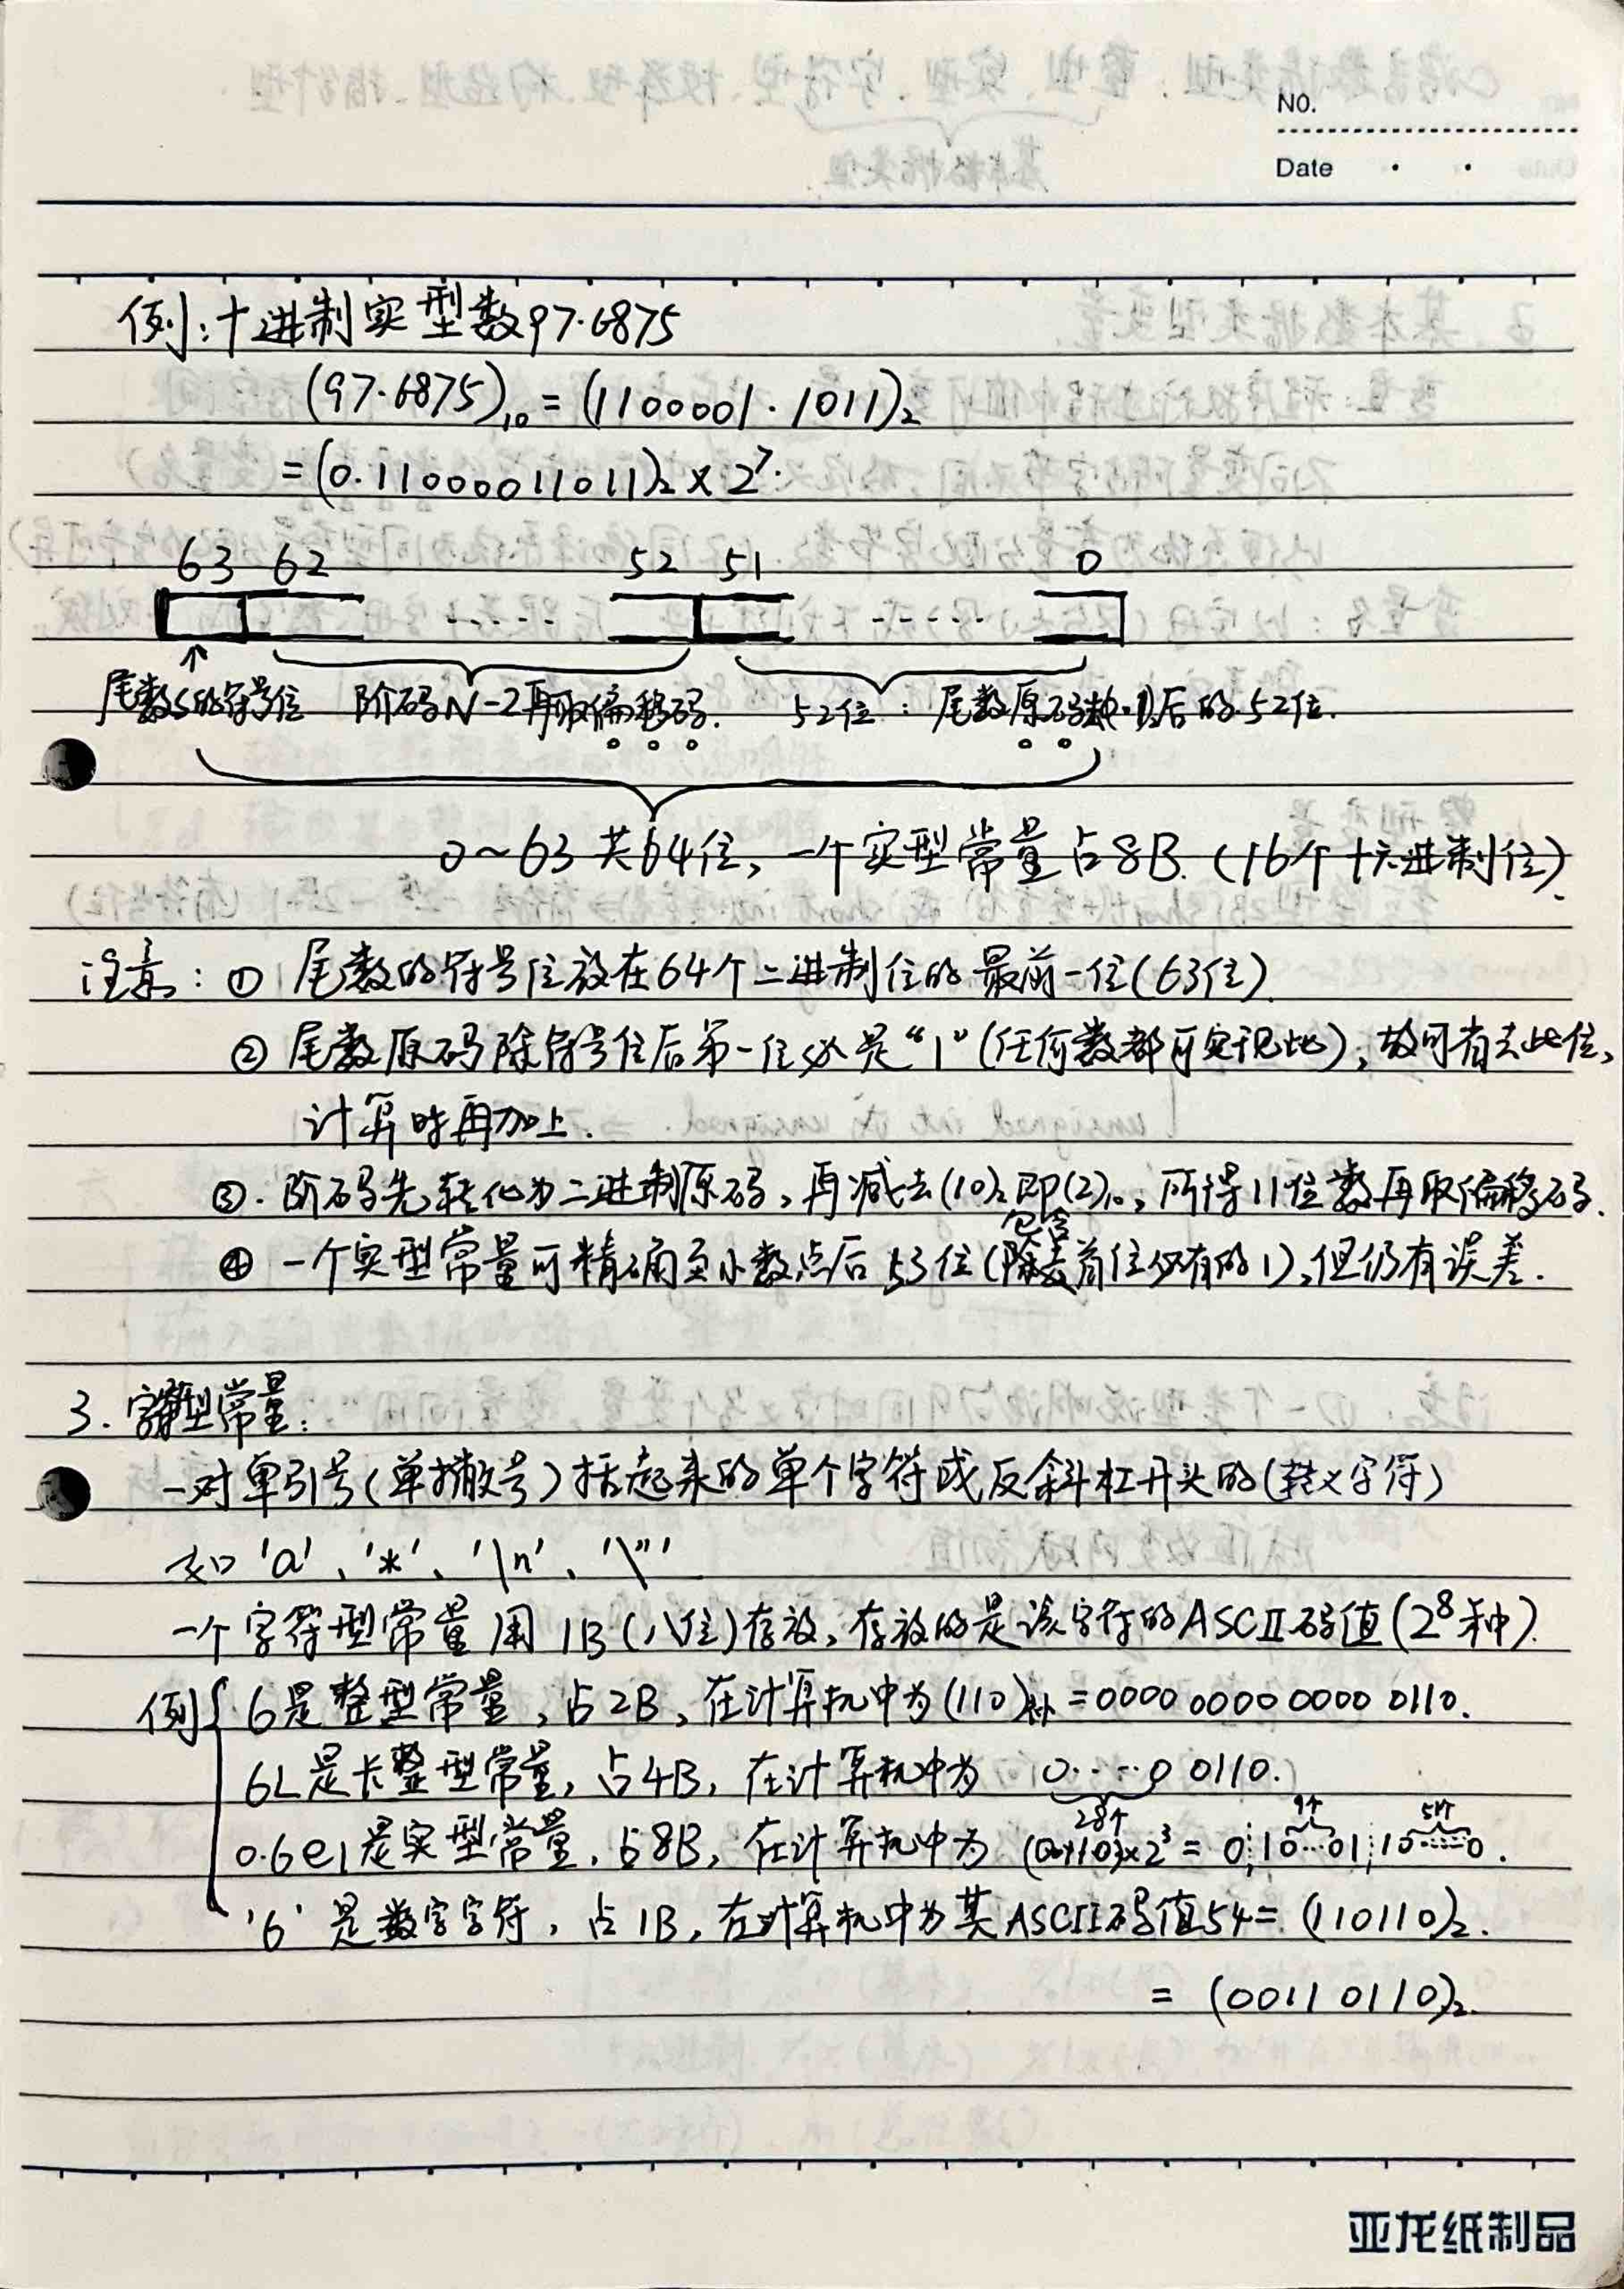 NO.
Date
例：十进制实型数97.6875
(97.6875)₁₀ = (1100001.1011)₂
= (0.11000011011)₂ × 2⁷.
63 62 52 51 0
尾数S的符号位 阶码N-2再取偏移码. 52位：尾数原码 后的52位.
0~63共64位，一个实型常量占8B.（16个十六进制位）.
注意：① 尾数的符号位放在64个二进制位的最前一位(63位).
② 尾数原码除符号位后第一位必是“1”(任何数都可实现此)，故可省去此位，
计算时再加上.
③. 阶码先转化为二进制原码，再减去(10)₂即(2)₁₀，所得11位数再取偏移码.
④ 一个实型常量可精确至小数点后53位(包含首位必有的1)，但仍有误差.
3. 字符型常量：
一对单引号(单撇号)括起来的单个字符或反斜杠开头的(转义字符)
如 'a'、'*'、'\n'、'\"'
一个字符型常量用1B(八位)存放，存放的是该字符的ASCII码值(2⁸种).
例{ 6是整型常量，占2B，在计算机中为(110)补 = 0000 0000 0000 0110.
6L是长整型常量，占4B，在计算机中为 0……0 0110.
28个 9个 51个
0.6e1是实型常量，占8B，在计算机中为 (0.110)×2³ = 0 10…01 10……0.
'6' 是数字字符，占1B，在计算机中为其ASCII码值54 = (110110)₂.
= (0011 0110)₂.
亚龙纸制品